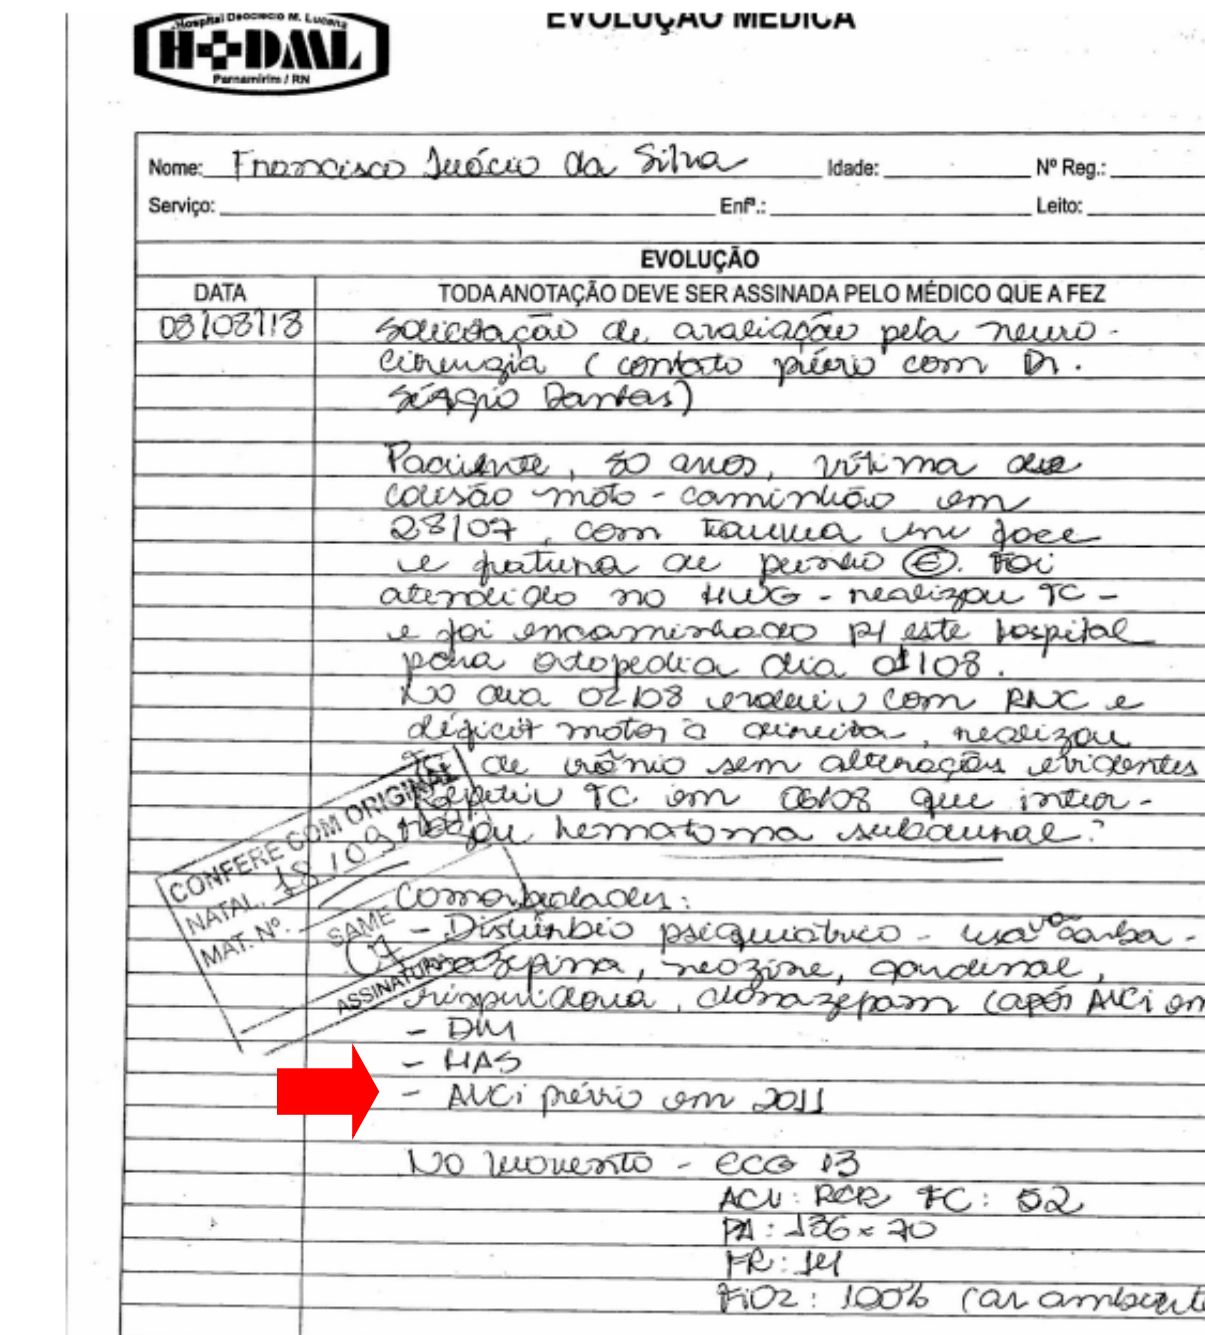 Hospital Deoclécio M. Lucena
HDML
Parnamirim / RN
EVOLUÇÃO MÉDICA
Nome: Francisco Inácio da Silva Idade: Nº Reg.:
Serviço: Enfª.: Leito:
EVOLUÇÃO
DATA TODA ANOTAÇÃO DEVE SER ASSINADA PELO MÉDICO QUE A FEZ
08/08/13 Solicitação de avaliação pela neuro-
cirurgia (contato prévio com Dr.
Sérgio Dantas)
Paciente, 50 anos, vítima de
colisão moto - caminhão em
28/07, com trauma em face
e fratura de punho (E). Foi
atendido no HWG - realizou TC -
e foi encaminhado p/ este hospital
para ortopedia dia 01/08.
No dia 02/08 evoluiu com RNC e
déficit motor à direita, realizou
TC de crânio sem alterações evidentes
Repetiu TC em 06/08 que inter-
rogou hematoma subdural?
CONFERE COM ORIGINAL
NATAL, 18/09
MAT. Nº.
SAME
ASSINATURA
Comorbidades:
- Distúrbio psiquiátrico - usa carba-
mazepina, neozine, gardenal,
risperidona, clonazepam (após AVCi em
- DM
- HAS
- AVCi prévio em 2011
No momento - ECG 13
ACV: RCR FC: 52
PA: 136 x 70
FR: 14
FiO2: 100% (ar ambiente